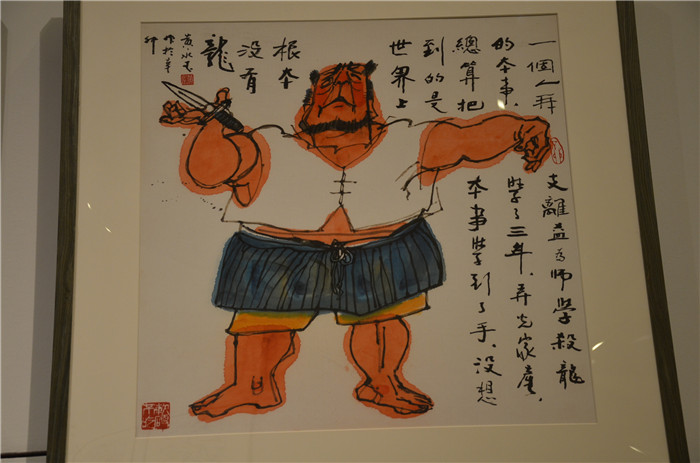 一個人拜支離益為師學殺龍
的本事、學了三年、弄光家產、
總算把本事學到了手、沒想
到的是
世界上
根本
沒有
龍
黃永玉
作於辛
卯